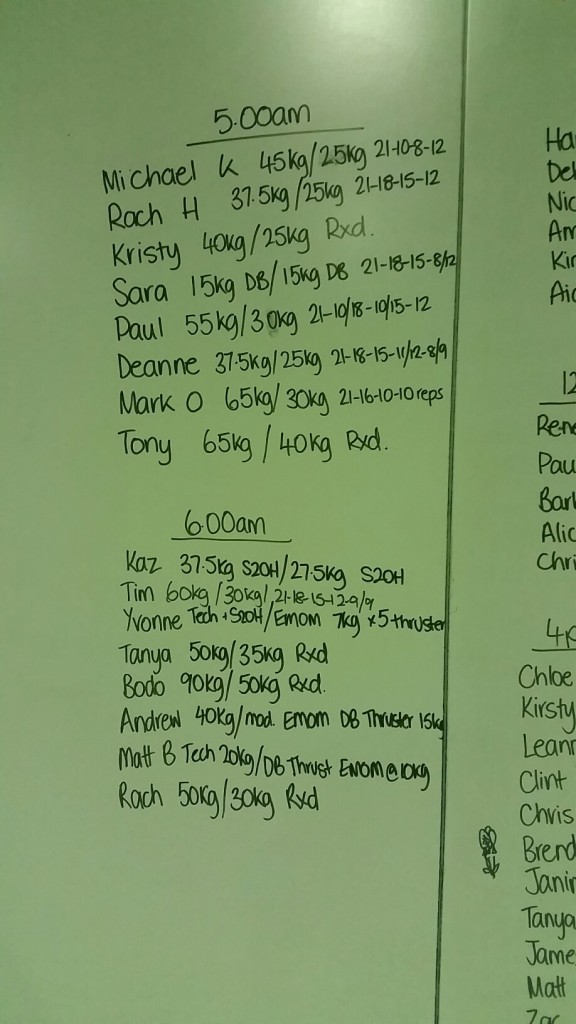 5.00am
Michael K 45kg/25kg 21-10-8-12
Rach H 37.5kg/25kg 21-18-15-12
Kristy 40kg/25kg Rxd.
Sara 15kg DB/15kg DB 21-18-15-8/12
Paul 55kg/30kg 21-10/18-10/15-12
Deanne 37.5kg/25kg 21-18-15-11/12-8/9
Mark O 65kg/30kg 21-16-10-10 reps
Tony 65kg/40kg Rxd.
6.00am
Kaz 37.5kg S2OH/27.5kg S2OH
Tim 60kg/30kg/21-18-15-12-9/9
Yvonne Tech + S2OH/Emom 7kg x5 thruster
Tanya 50kg/35kg Rxd
Bodo 90kg/50kg Rxd.
Andrew 40kg/mod. Emom DB Thruster 15kg
Matt B Tech 20kg/DB Thrust Emom@10kg
Rach 50kg/30kg Rxd
Ha
Del
Nic
Am
Kir
Aid
12
Rene
Pau
Barb
Alic
Chri
4p
Chloe
Kirsty
Leann
Clint
Chris
Brend
Janin
Tanya
Jame
Matt
Zac